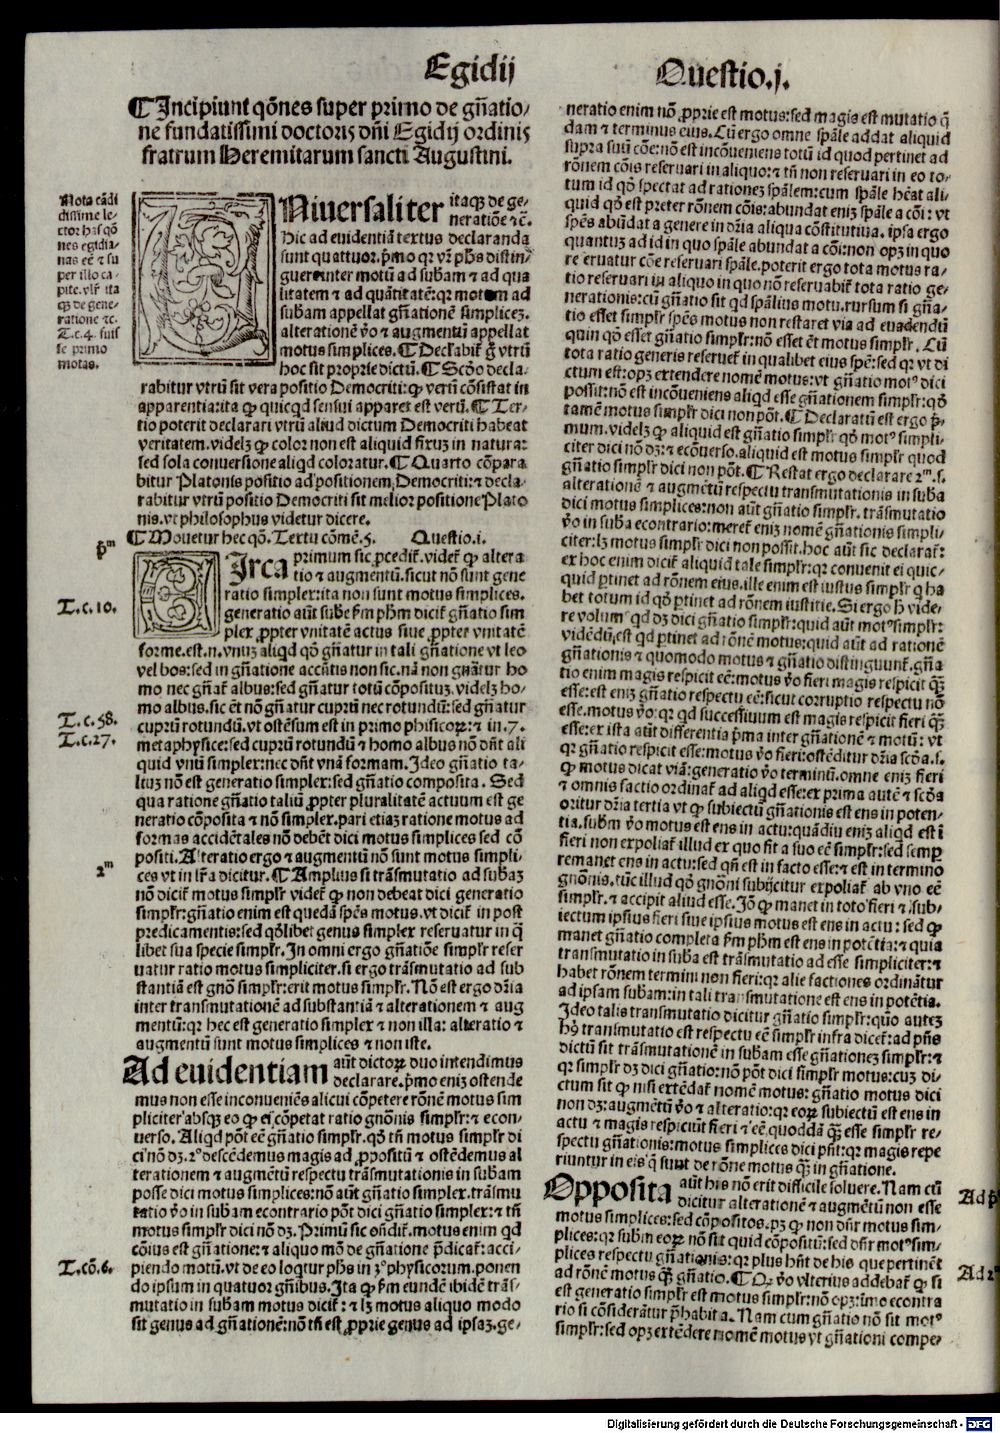 Egidij
Questio.j.
¶Incipiunt qōnes super primo de gñatio/
ne fundatissimi doctoris dñi Egidij ordinis
fratrum Heremitarum sancti Augustini.
Nota cādi
dissime le-
ctor has qō
nes egidia-
nas eē ⁊ su
per illo ca-
pite. vlr̃ ita
qꝫ de gene-
ratione ⁊c.
T.c.4. fuis
se primo
motas.
Niuersaliter itaqꝫ de ge-
neratiōe ⁊ c̄.
hic ad euidentiā textus declaranda
sunt quattuor. p̄mo qꝛ vr̃ ph̄s distin/
guere inter motū ad subam ⁊ ad qua
litatem ⁊ ad quātitatē: qꝛ motum ad
subam appellat gñationē simplicez.
alterationē v̄o ⁊ augmentū appellat
motus simplices. ¶Declarabit̄ g̃ vtrū
hoc sit proprie dictū. ¶Scōo decla-
rabitur vtrū sit vera positio Democriti: ꝙ verū cōsistat in
apparentia: ita ꝙ quicqd sensui apparet est verū. ¶Ter-
tio poterit declarari vtrū aliud dictum Democriti habeat
veritatem. videlꝫ ꝙ color non est aliquid fixuz in natura:
sed sola conuersione aliqd coloratur. ¶Quarto cōpara
bitur Platonis positio ad positionem Democriti: ⁊ decla-
rabitur vtrū positio Democriti sit melior positione Plato
nis. vt philosophus videtur dicere.
¶Mouetur hec qō. Textu cōmē. 5. Questio.i.
p̄ᵐ
Irca primum sic ꝓcedit̄. videt̄ ꝙ altera
tio ⁊ augmentū. sicut nō sunt gene
ratio simplex: ita non sunt motus simplices.
T.c.10.
generatio aūt sube f̄m ph̄m dicit̄ gñatio sim
plex ꝓpter vnitatē actus siue ꝓpter vnitatē
forme. est. n. vnuz aliqd qō gñatur in tali gñatione vt leo
vel bos: sed in gñatione accñtis non sic. nā non gnātur ho
mo nec gñat̄ albus: sed gñatur totū cōposituz. videlꝫ ho/
mo albus. sic ēt nō gñatur cuprū nec rotundū: sed gñatur
T.c.58.
cuprū rotundū. vt ostēsum est in primo phisicoꝝ: ⁊ in .7.
T.c.27.
metaphysice: sed cuprū rotundū ⁊ homo albus nō dñt ali
quid vnū simplex: nec dñt vnā formam. Ideo gñatio ta-
liuz nō est generatio simplex: sed gñatio composita. Sed
qua ratione gñatio taliū ꝓpter pluralitatē actuum est ge
neratio cōposita ⁊ nō simplex. pari etiaz ratione motus ad
formas accidētales nō debēt dici motus simplices sed cō
positi. Alteratio ergo ⁊ augmentū nō sunt motus simpli-
2ᵐ
ces vt in lr̃a dicitur. ¶Amplius si trāsmutatio ad subaz
nō dicit̄ motus simplr̃ videt̄ ꝙ non debeat dici generatio
simplr̃: gñatio enim est quedā sp̄es motus. vt dicit̄ in post
predicamentis: sed qōlibet genus simplex reseruatur in q̄
libet sua specie simplr̃. In omni ergo gñatiōe simplr̃ reser
uatur ratio motus simpliciter. si ergo trāsmutatio ad sub
stantiā est gnō simplr̃: erit motus simplr̃. Nō est ergo dr̄ia
inter transmutationē ad substantiā ⁊ alterationem ⁊ aug
mentū: qꝛ hec est generatio simplex ⁊ non illa: alteratio ⁊
augmentū sunt motus simplices ⁊ non iste.
Ad euidentiam aūt dictoꝝ duo intendimus
declarare. p̄mo eniz ostende
mus non esse inconueniēs alicui cōpetere rōnē motus sim
pliciter absqꝫ eo ꝙ ei cōpetat ratio gnōnis simplr̃: ⁊ econ-
uerso. Aliqd pōt eē gñatio simplr̃. qō tñ motus simplr̃ di
ci nō dꝫ. 2º descēdemus magis ad ꝓpositū ⁊ ostēdemus al
terationem ⁊ augmētū respectu trāsmutationis in subam
posse dici motus simplices: nō aūt gñatio simplex. trāsmu
tatio v̄o in subam econtrario pōt dici gñatio simplex: ⁊ tñ
motus simplr̃ dici nō dꝫ. Primū sic oñdit̄. motus enim qd
cōius est gñatione: ⁊ aliquo mō de gñatione p̄dicat̄: acci/
T.cō.6.
piendo motū. vt de eo loqtur ph̄s in 3º physicorum. ponen
do ipsum in quatuor gñibus. Ita ꝙ f̄m eundē ibidē trās/
mutatio in subam motus dicit̄: ⁊ lꝫ motus aliquo modo
sit genus ad gñationē: nō tñ est ꝓprie genus ad ipsaz. ge/
neratio enim nō ꝓprie est motus: sed magis est mutatio q̄
dam ⁊ terminus eius. Cū ergo omne sp̄ale addat aliquid
supra suū cōe: nō est incōueniens totū id quod pertinet ad
rōnem cōis reseruari in aliquo: ⁊ tñ non reseruari in eo to-
tum id qō spectat ad rationez sp̄alem: cum sp̄ale hēat ali-
quid qō est preter rōnem cōis: abundat eniz sp̄ale a cōi: vt
sp̄es abūdat a genere in dr̄ia aliqua cōstitutiua. ipsa ergo
quantuz ad id in quo sp̄ale abundat a cōi: non opꝫ in quo
reseruatur cōe reseruari sp̄ale. poterit ergo tota motus ra-
tio reseruari in aliquo in quo nō reseruabit̄ tota ratio ge-
nerationis: cū gñatio sit qd sp̄alius motu. rursum si gña-
tio esset simplr̃ sp̄es motus non restaret via ad euadendū
quin qō esset gñatio simplr̃: nō esset ēt motus simplr̃. Cū
tota ratio generis reseruet̄ in qualibet eius sp̄e: sed qꝛ vt di
ctum est: opꝫ extendere nomē motus: vt gñatio motꝰ dici
possit: nō est incōueniens aliqd esse gñationem simplr̃: qō
tamē motus simplr̃ dici non pōt. ¶Declaratū est ergo p̄-
mum. videlꝫ ꝙ aliquid est gñatio simplr̃ qō motꝰ simpli-
citer dici nō dꝫ: ⁊ ecōuerso. aliquid est motus simplr̃ quod
gñatio simplr̃ dici non pōt. ¶Restat ergo declarare 2ᵐ. s.
alterationē ⁊ augmētū respectu transmutationis in suba
dici motus simplices: non aūt gñatio simplr̃. trāsmutatio
v̄o in suba econtrario: meret̄ eniz nomē gñationis simpli-
citer: lꝫ motus simplr̃ dici non possit. hoc aūt sic declarat̄:
ex hoc enim dicit̄ aliquid tale simplr̃: qꝛ conuenit ei quic-
quid ꝑtinet ad rōnem eius. ille enim est iustus simplr̃ q ha
bet totum id qō ꝑtinet ad rōnem iustitie. Si ergo h̄ vide-
re volumꝰ qd dꝫ dici gñatio simplr̃: quid aūt motꝰ simplr̃:
vidēdū est qd ꝑtinet ad rōnē motus: quid aūt ad rationē
gñationis ⁊ quomodo motus ⁊ gñatio distinguunt̄. gña
tio enim magis respicit eē: motus v̄o fieri magis respicit q̄ꝫ
esse: est eniz gñatio respectu eē: sicut corruptio respectu nō
esse. motus v̄o: qꝛ qd successiuum est magis respicit fieri q̄ꝫ
esse: ex ista aūt differentia p̄ma inter gñationē ⁊ motū: vt
qꝛ gñatio respicit esse: motus v̄o fieri: ostēditur dr̄ia scōa. s.
ꝙ motus dicat viā: generatio v̄o terminū. omne eniz fieri
⁊ omnis factio ordinat̄ ad aliqd esse: ex prima autē ⁊ scōa
oritur dr̄ia tertia vt ꝙ subiectū gñationis est ens in poten-
tia. subm v̄o motus est ens in actu: quādiu eniz aliqd est ī
fieri non expoliat̄ illud ex quo fit a suo eē simplr̃: sed semꝑ
remanet ens in actu: sed qñ est in facto esse: ⁊ est in termino
gnōnis. tūc illud qō gnōni subijcitur expoliat̄ ab vno eē
simplr̃. ⁊ accipit aliud esse. Iō ꝙ manet in toto fieri ⁊ sub/
iectum ipsius fieri siue ipsius motus est ens in actu: sed ꝙ
manet gñatio completa f̄m ph̄m est ens in potētia: ⁊ quia
transmutatio in suba est trāsmutatio ad esse simpliciter: ⁊
habet rōnem termini non fieri: qꝛ alie factiones ordināntur
ad ipsam subam: in tali transmutatione est ens in potētia.
Ideo talis transmutatio dicitur gñatio simplr̃: quō autez
hō transmutatio est respectu eē simplr̃ infra dicet̄: ad p̄ns
dictū sit trāsmutationē in subam esse gñationez simplr̃: ⁊
qꝛ simplr̃ dꝫ dici gñatio: nō pōt dici simplr̃ motus: cuz di-
ctum sit ꝙ nisi extēdat̄ nomē motus: gñatio motus dici
non dꝫ: augmētū v̄o ⁊ alteratio: qꝛ eoꝝ subiectū est ens in
actu ⁊ magis respiciūt fieri ⁊ eē. quoddā q̄ꝫ esse simplr̃ re-
spectu gñationis: motus simplices dici p̄nt: qꝛ magis repe
riuntur in eis q̄ sunt de rōne motus q̄ꝫ in gñatione.
Opposita aūt his nō erit difficile soluere. Nam cū
Ad p̄
dicitur alterationē ⁊ augmētū non esse
motus simplices: sed cōpositos. pꝫ ꝙ non dñr motus sim-
plices: qꝛ subm eoꝝ nō sit quid cōpositū: sed dñr motꝰ sim/
plices respectu gñationis: qꝛ plus hñt de his que pertinēt
Ad 2ᵐ
ad rōnē motus q̄ꝫ gñatio. ¶Qꝛ v̄o vlterius addebat̄ ꝙ si
est generatio simplr̃ est motus simplr̃: nō opꝫ: imo econtra
rio si cōsideratur p̄habita. Nam cum gñatio nō sit motꝰ
simplr̃: sed opꝫ extēdere nomē motus vt gñationi compe/
Digitalisierung gefördert durch die Deutsche Forschungsgemeinschaft - DFG